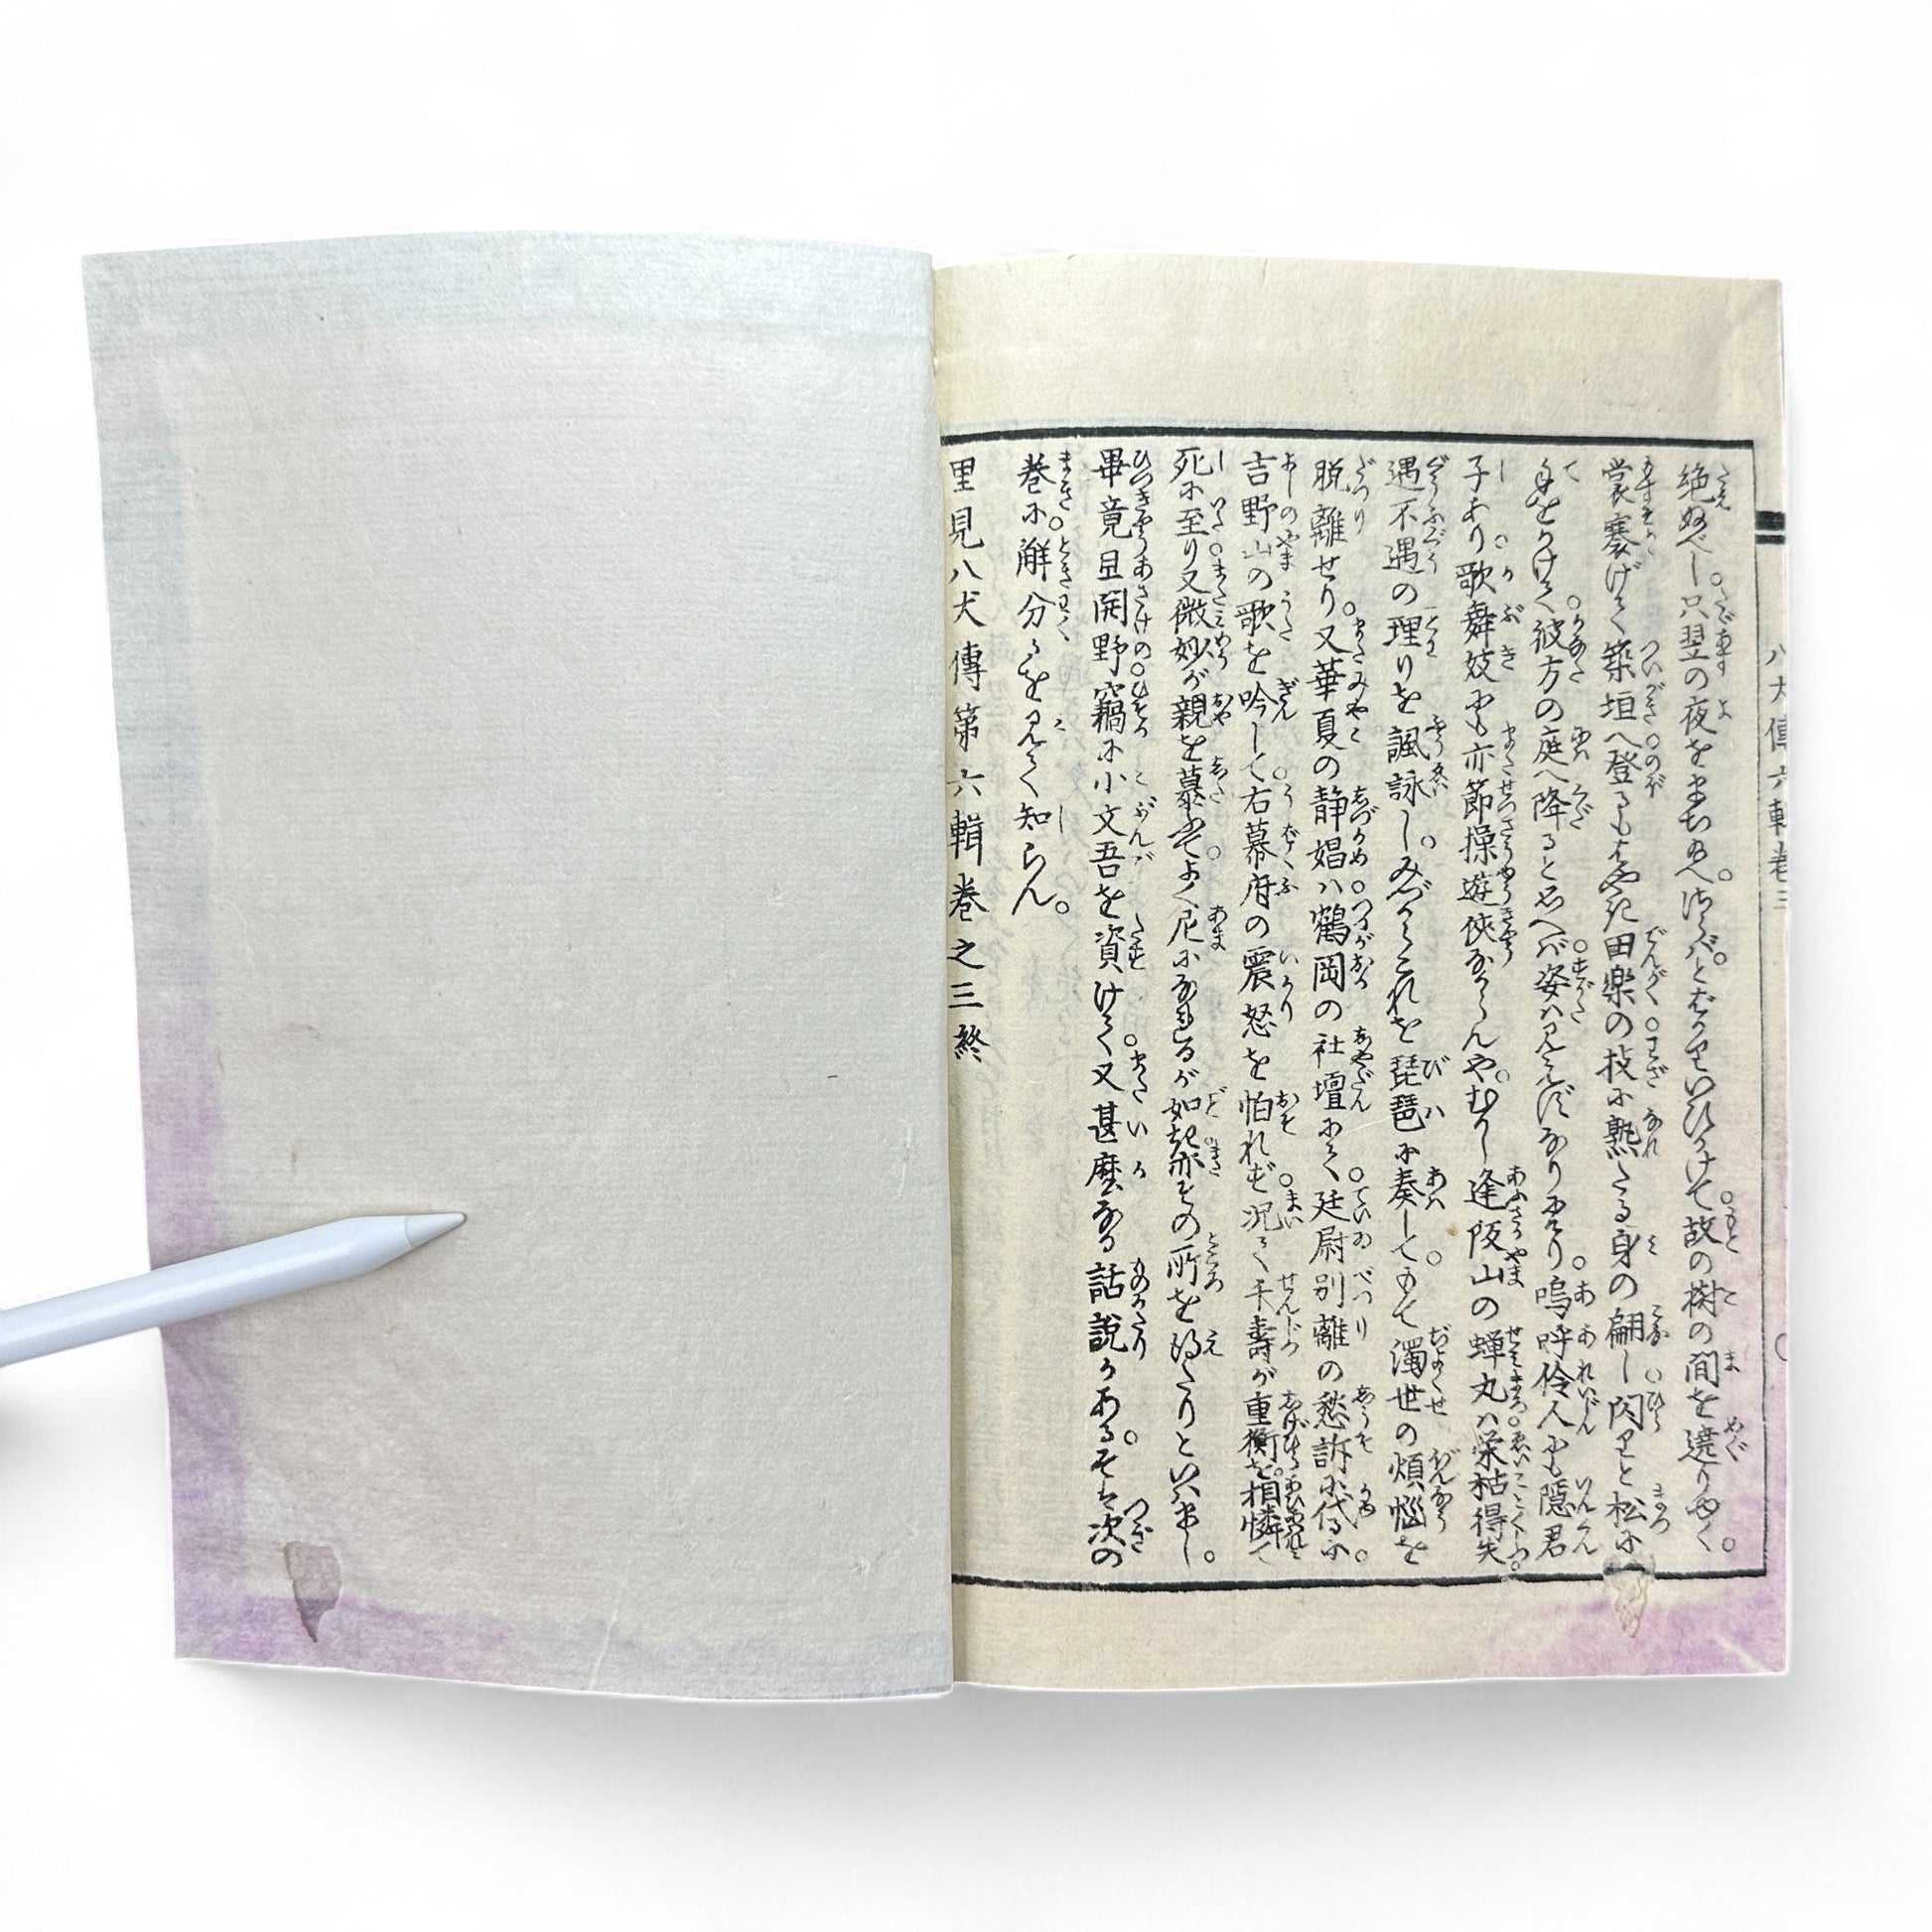 絶ぬべし。只翌の夜をまち給へ。さらばとばかりいひかけて。故の樹の間を遶りゆく。
裳褰げて築垣へ登るもはやき田楽の技に熟たる身の翩し。閃りと松に
手をかけて。彼方の庭へ降ると思へば。姿は見えずなりにけり。嗚呼伶人にも隠君
子あり。歌舞妓にも亦節操遊侠なからんや。むかし逢阪山の蝉丸は。栄枯得失。
遇不遇の理りを諷詠し。みづからこれを琵琶に奏して。もて濁世の煩悩を
脱離せり。又華夏の静娼は。鶴岡の社壇にて。廷尉別離の愁訴に代るに。
吉野山の歌を吟じて。右幕府の震怒を怕れず。況て千壽が重衡を相憐て
死に至り。又微妙が親を慕ふて。よく尼になれるが如き。亦その所を得たりといはまし。
畢竟旦開野。竊に小文吾を資けて。又甚麼なる話説かある。そは次の
巻に。解分るを見て知らん。
里見八犬傳第六輯巻之三終
八犬傳六輯巻三